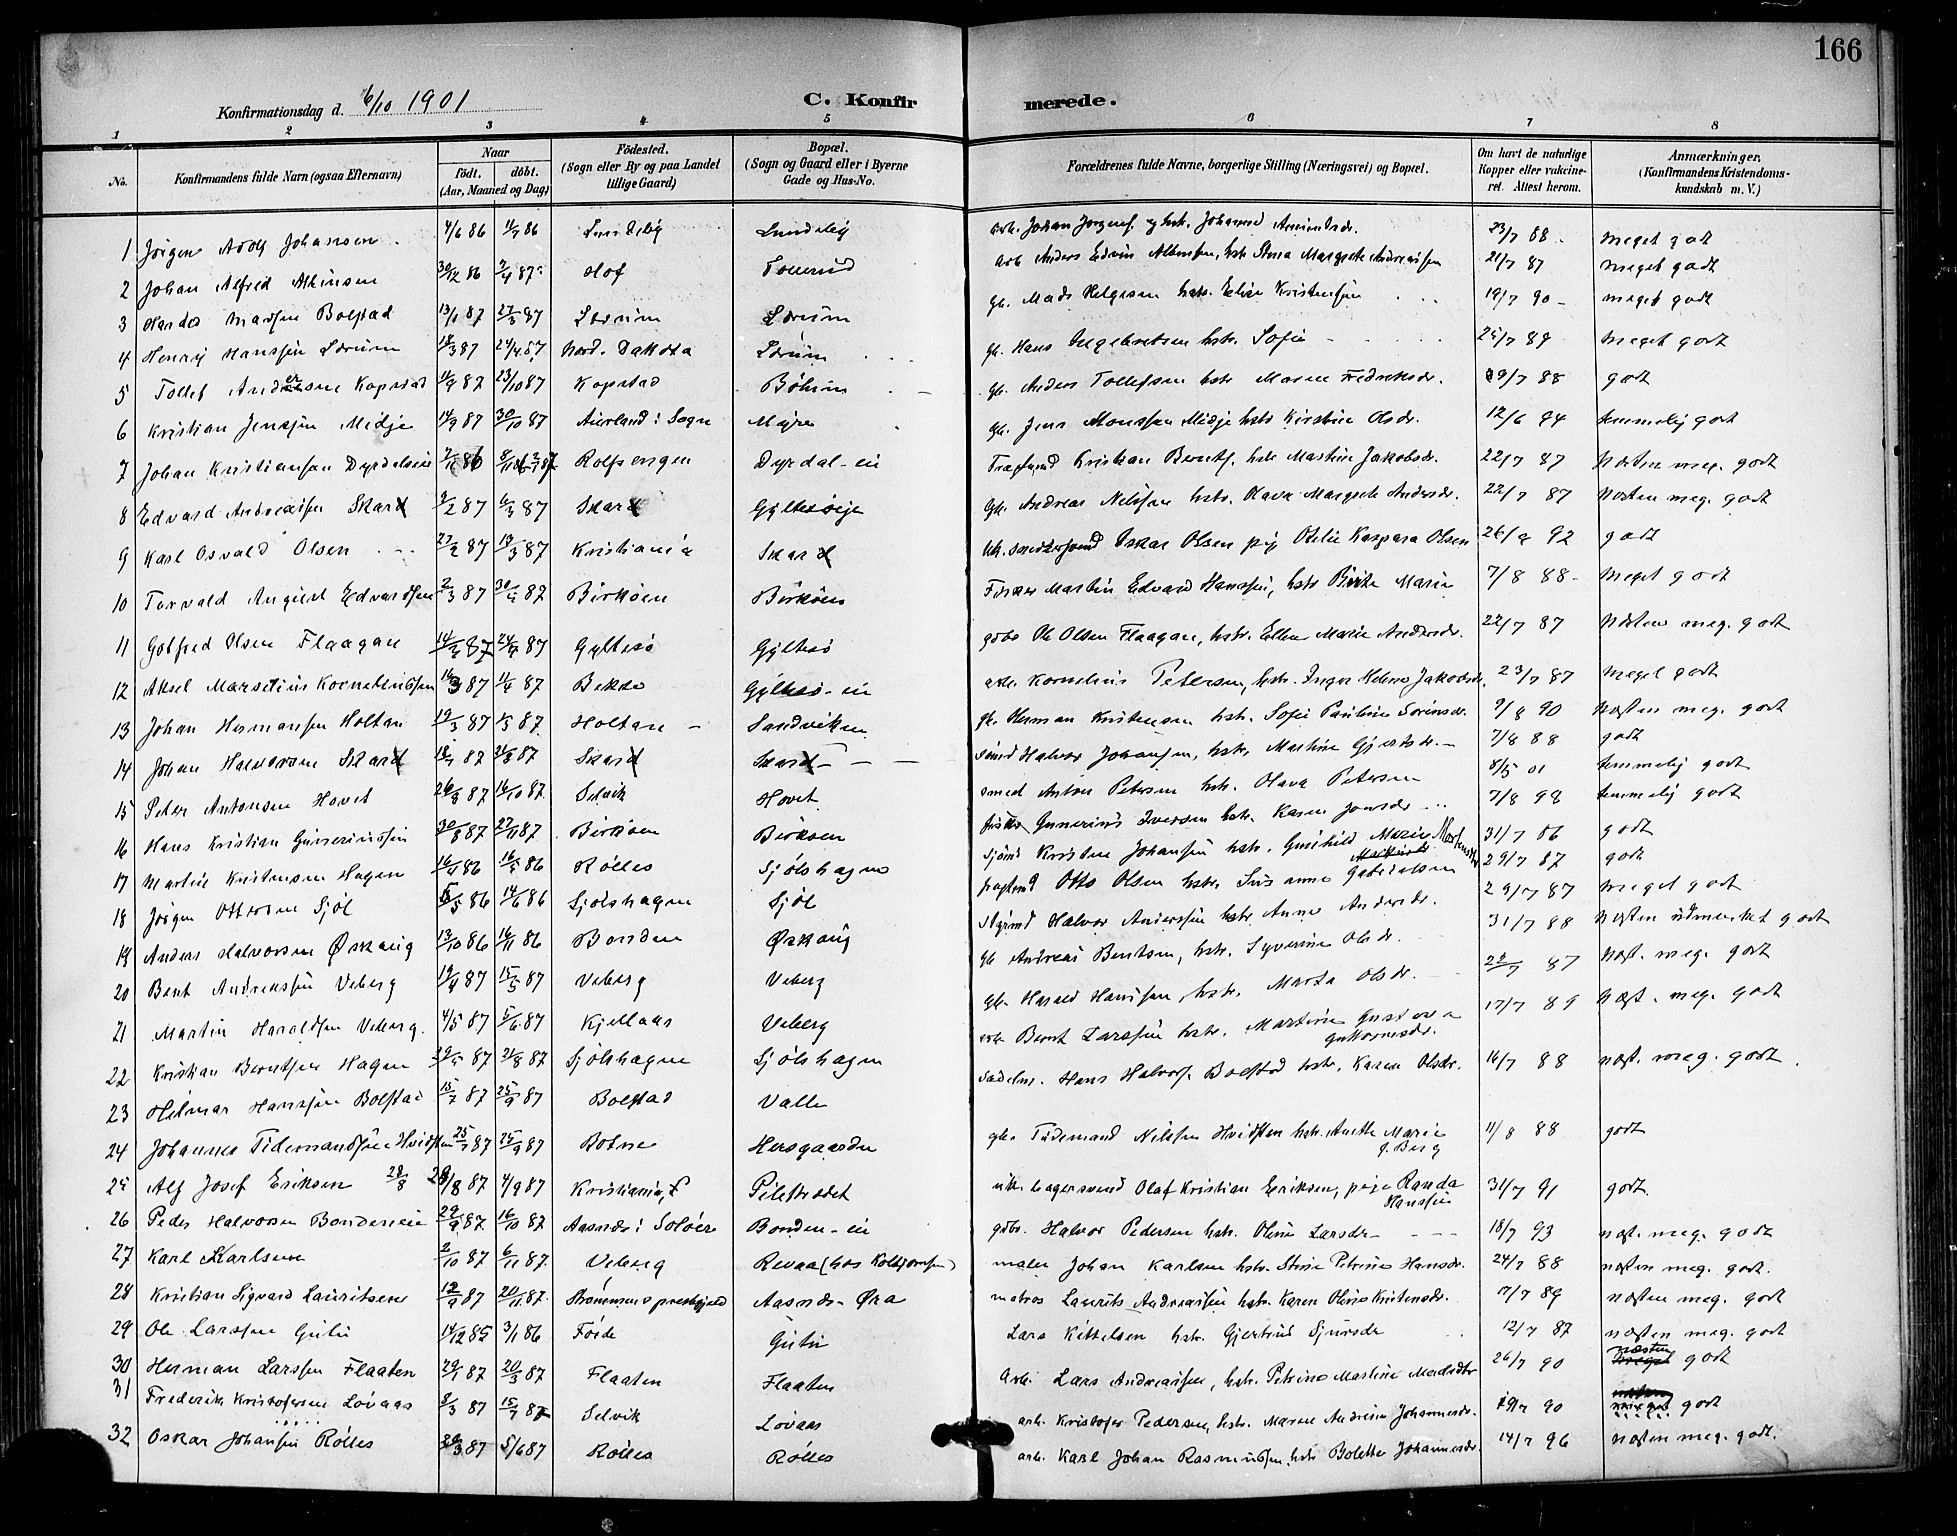 166
Konfirmationsdag d. 6/10 1901
C. Konfirmerede.
1 2 3 4 5 6 7 8
No.
Konfirmandens fulde Navn (ogsaa Efternavn)
Naar
født. døbt.
(Aar, Maaned og Dag)
Födested.
(Sogn eller By og paa Landet
tillige Gaard)
Bopæl.
(Sogn og Gaard eller i Byerne
Gade og Hus-No.
Forældrenes fulde Navne, borgerlige Stilling (Næringsvei) og Bopæl.
Om havt de naturlige
Kopper eller vakcine-
ret. Attest herom.
Anmærkninger.
(Konfirmandens Kristendoms-
kundskab m. V.)
1 Jørgen Adolf Johansen 4/6 86 11/7 86 Lundeby Lundeby arb. Johan Jørgens. og hstr. Johanne 23/7 88 meget godt
2 Johan Alfred Albinsen 30/12 86 2/4 87 Hof Tollerud arb Anders Edvin Albinsen, hstr. Anna Margrete Andreassen 21/7 87 meget godt
3 Madssen Bolstad 13/1 87 27/3 87 Lørum Lørum gb. Mads Helgesen hstr. Elise Kristensen 19/7 90 meget godt
4 Henry Hanssen Lørum 18/3 87 24/4 87 Nord. Dakota Lørum gb. Hans Ingebretsen hstr. Sofie 25/7 89 meget godt
5 Tollef Andersen Kopstad 11/9 87 23/10 87 Kopstad Böhum gb. Anders Tollefsen hstr Maren Fredriksdr. 29/7 88 godt
6 Kristian Jenssen Midje 14/9 87 30/10 87 Aurland i Sogn Myre gb. Jens Monssen Midje hstr Kirstine Olsdr. 12/6 94 temmelig godt
7 Johan Kristiansen Dyrdalseie 86 Rolfsengen Dyrdal-eie Kristian Bernts. hstr Mastine Jakobsdr. 22/7 87 Næsten meg. godt
8 Edvard Andreassen Skar 9/2 87 6/3 87 Skar Gyltesøeje gb. Andreas Nilssen hstr. Olava Margrete Andersdr. 22/7 87 Næsten meg. godt
9 Karl Osvald Olsen 27/2 87 13/3 87 Kristiania Skar Oskar Olsen pig Otilie Kaspara Olsen 26/8 92 godt
10 Torvald August Edvardsen 2/3 87 30/4 87 Birköen Birköen Fisker Martin Edvard Hanssen, hstr Birte Marie 7/8 88 meget godt
11 Gotfred Olsen Flaagan 14/2 87 24/4 87 Gyltesö Gyltesö gdbr Ole Olsen Flaagan, hstr. Ellen Marie Andersdr. 22/7 87 Næsten meg. godt
12 Aksel Marselius Korneliussen 14/3 87 11/4 87 Bekke Gyltesø-eie arb. Kornelius Petersen, hstr. Inger Helene Jakobsdr. 23/7 87 meget godt
13 Johan Hermansen Holtan 19/3 87 87 Holtan Sandviken gb. Herman Kristensen hstr. Sofie Pauline Sörensdr. 9/8 90 Næsten meg. godt
14 Johan Halvorsen Skar 87 21/8 87 Skar Skar Halvor Johansen, hstr. Martine Gjertsdr. 7/8 88 godt
15 Peter Antonsen Hovet 26/8 87 16/10 87 Selvik Hovet smed Anton Petersen hstr. Olava Petersen 8/5 01 temmelig godt
16 Hans Kristian Gunneriussen 30/8 87 27/11 87 Birköen Birköen fisker Gunnerius Iversen hstr. Karen Jonsdr 7/8 98 temmelig godt
17 Martin Kristensen Hagen 16/4 86 16/5 86 Rölles Sjölshagen sjömd Kristen Johansen hstr. Gunhild Marie Mortensdr 31/7 86 godt
18 Jørgen Ottosen Sjöl 5/5 86 14/6 86 Sjölshagen Sjöl Otto Olsen hstr. Susanne Gabrielsen 29/7 87 godt
19 Anders Halvorsen Øskaug 13/10 86 14/11 86 Bonden Øskaug Halvor Anderssen hstr Anne Andersdr. 29/7 87 meget godt
20 Bent Andreassen Veberg 19/4 87 15/5 87 Veberg Veberg gb Andreas Bentsen, hstr. Syverine Olsdr. 31/7 88 Næsten udmerket godt
21 Martin Haraldsen Veberg. 4/5 87 5/6 87 Kjellaas Veberg gb. Harald Hanssen, hstr. Marta Olsdr. 28/7 87 Næst. meg. godt
22 Kristian Berntsen Hagen 87 21/8 87 Sjölshagen Sjölshagen arb. Bernt Larssen hstr. Martine Gustava
Guttormsdr. 17/7 89 Næst. meg. godt
23 Hilmar Hanssen Bolstad 15/7 87 25/9 87 Bolstad Valle Sadelm. Hans Halvors. Bolstad hstr. Karen Olsdr. 16/7 88 næst. meg. godt
24 Johannes Tidemandsen Hvidsten 25/7 87 25/9 87 Botne Hersgaarden gb. Tidemand Nilssen Hvidsten hstr. Anette Marie
f. Berg 11/8 88 godt
25 Alf Josef Eriksen 28/8 87 4/9 87 Kristiania Pilestrædet uk. lagersvend Olaf Kristian Eriksen, pige Randa
Hanssen 31/7 91 godt.
26 Peder Halvorsen Bondeneie 29/9 87 16/10 87 Aasnæs i Solöer Bonden-eie gdbr. Halvor Pedersen hstr. Oline Larsdr 18/7 93 næst. meg. godt
27 Karl Karlsen 2/10 87 6/11 87 Veberg Revaa (hos Kolbjørnsen) maler Johan Karlsen hstr. Stine Petrine Hansdr. 24/7 88 næsten meg. godt.
28 Kristian Sigvard Lauritsen 12/9 87 20/11 87 Strömmens prestegjeld Aasnæs-Øra matros Laurits Andreassen hstr. Karen Oline Kristensdr. 7/7 89 næsten meg. godt
29 Ole Larssen Gutu 14/12 85 3/1 86 Förde Gutu Lars Kittelsen hstr. Gjertrud Sjursdr 12/7 87 næsten meg. godt
30 Herman Larssen Flaaten 29/1 87 20/3 87 Flaaten Flaaten Arb. Lars Andreassen, hstr. Petrine Mastine Madsdtr 26/7 90 næsten
meget godt
31 Frederik Kristofersen Lövaas 8/3 87 15/7 87 Selvik Lövaas arb. Kristofer Pedersen, hstr. Maren Andrine Johannesdr. 19/7 90 næsten
meget godt
32 Oskar Johansen Rölles 20/3 87 5/6 87 Rölles Rölles arb. Karl Johan Rasmussen hstr Bolette Johannesdr. 14/7 96 næsten meg. godt.